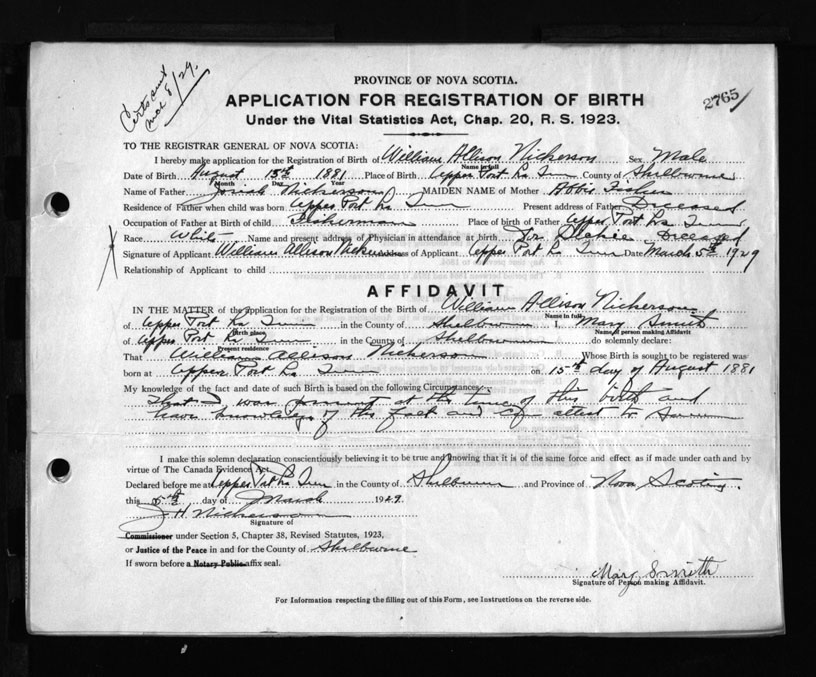 Certs sent
Mar 8/29.
PROVINCE OF NOVA SCOTIA.
2765
APPLICATION FOR REGISTRATION OF BIRTH
Under the Vital Statistics Act, Chap. 20, R. S. 1923.
TO THE REGISTRAR GENERAL OF NOVA SCOTIA:
I hereby make application for the Registration of Birth of William Allison Nickerson Sex Male
Name in full
Date of Birth August 15th 1881 Place of Birth Upper Port La Tour County of Shelburne
Month Day Year
Name of Father Josiah Nickerson MAIDEN NAME of Mother
Residence of Father when child was born Upper Port La Tour Present address of Father Deceased
Occupation of Father at Birth of child Fisherman Place of birth of Father Upper Port La Tour
Race White Name and present address of Physician in attendance at birth Deceased
Signature of Applicant William Allison Nickerson Address of Applicant Upper Port La Tour Date March 5th 1929
Relationship of Applicant to child
AFFIDAVIT
IN THE MATTER of the application for the Registration of the Birth of William Allison Nickerson
Name in full
of Upper Port La Tour in the County of Shelburne I, Mary Smith
Birth place Name of person making Affidavit
of Upper Port La Tour in the County of Shelburne do solemnly declare:
Present residence
That William Allison Nickerson Whose Birth is sought to be registered was
born at Upper Port La Tour on 15th day of August 1881
My knowledge of the fact and date of such Birth is based on the following Circumstances:
That I was present at the time of this birth and
have knowledge of the fact and attest to
I make this solemn declaration conscientiously believing it to be true and knowing that it is of the same force and effect as if made under oath and by
virtue of The Canada Evidence Act.
Declared before me at Upper Port La Tour in the County of Shelburne and Province of Nova Scotia.
this 5th day of March 1929.
J H Nickerson
Signature of
Commissioner under Section 5, Chapter 38, Revised Statutes, 1923,
or Justice of the Peace in and for the County of Shelburne
If sworn before a Notary Public affix seal.
Mary Smith
Signature of Person making Affidavit.
For Information respecting the filling out of this Form, see Instructions on the reverse side.